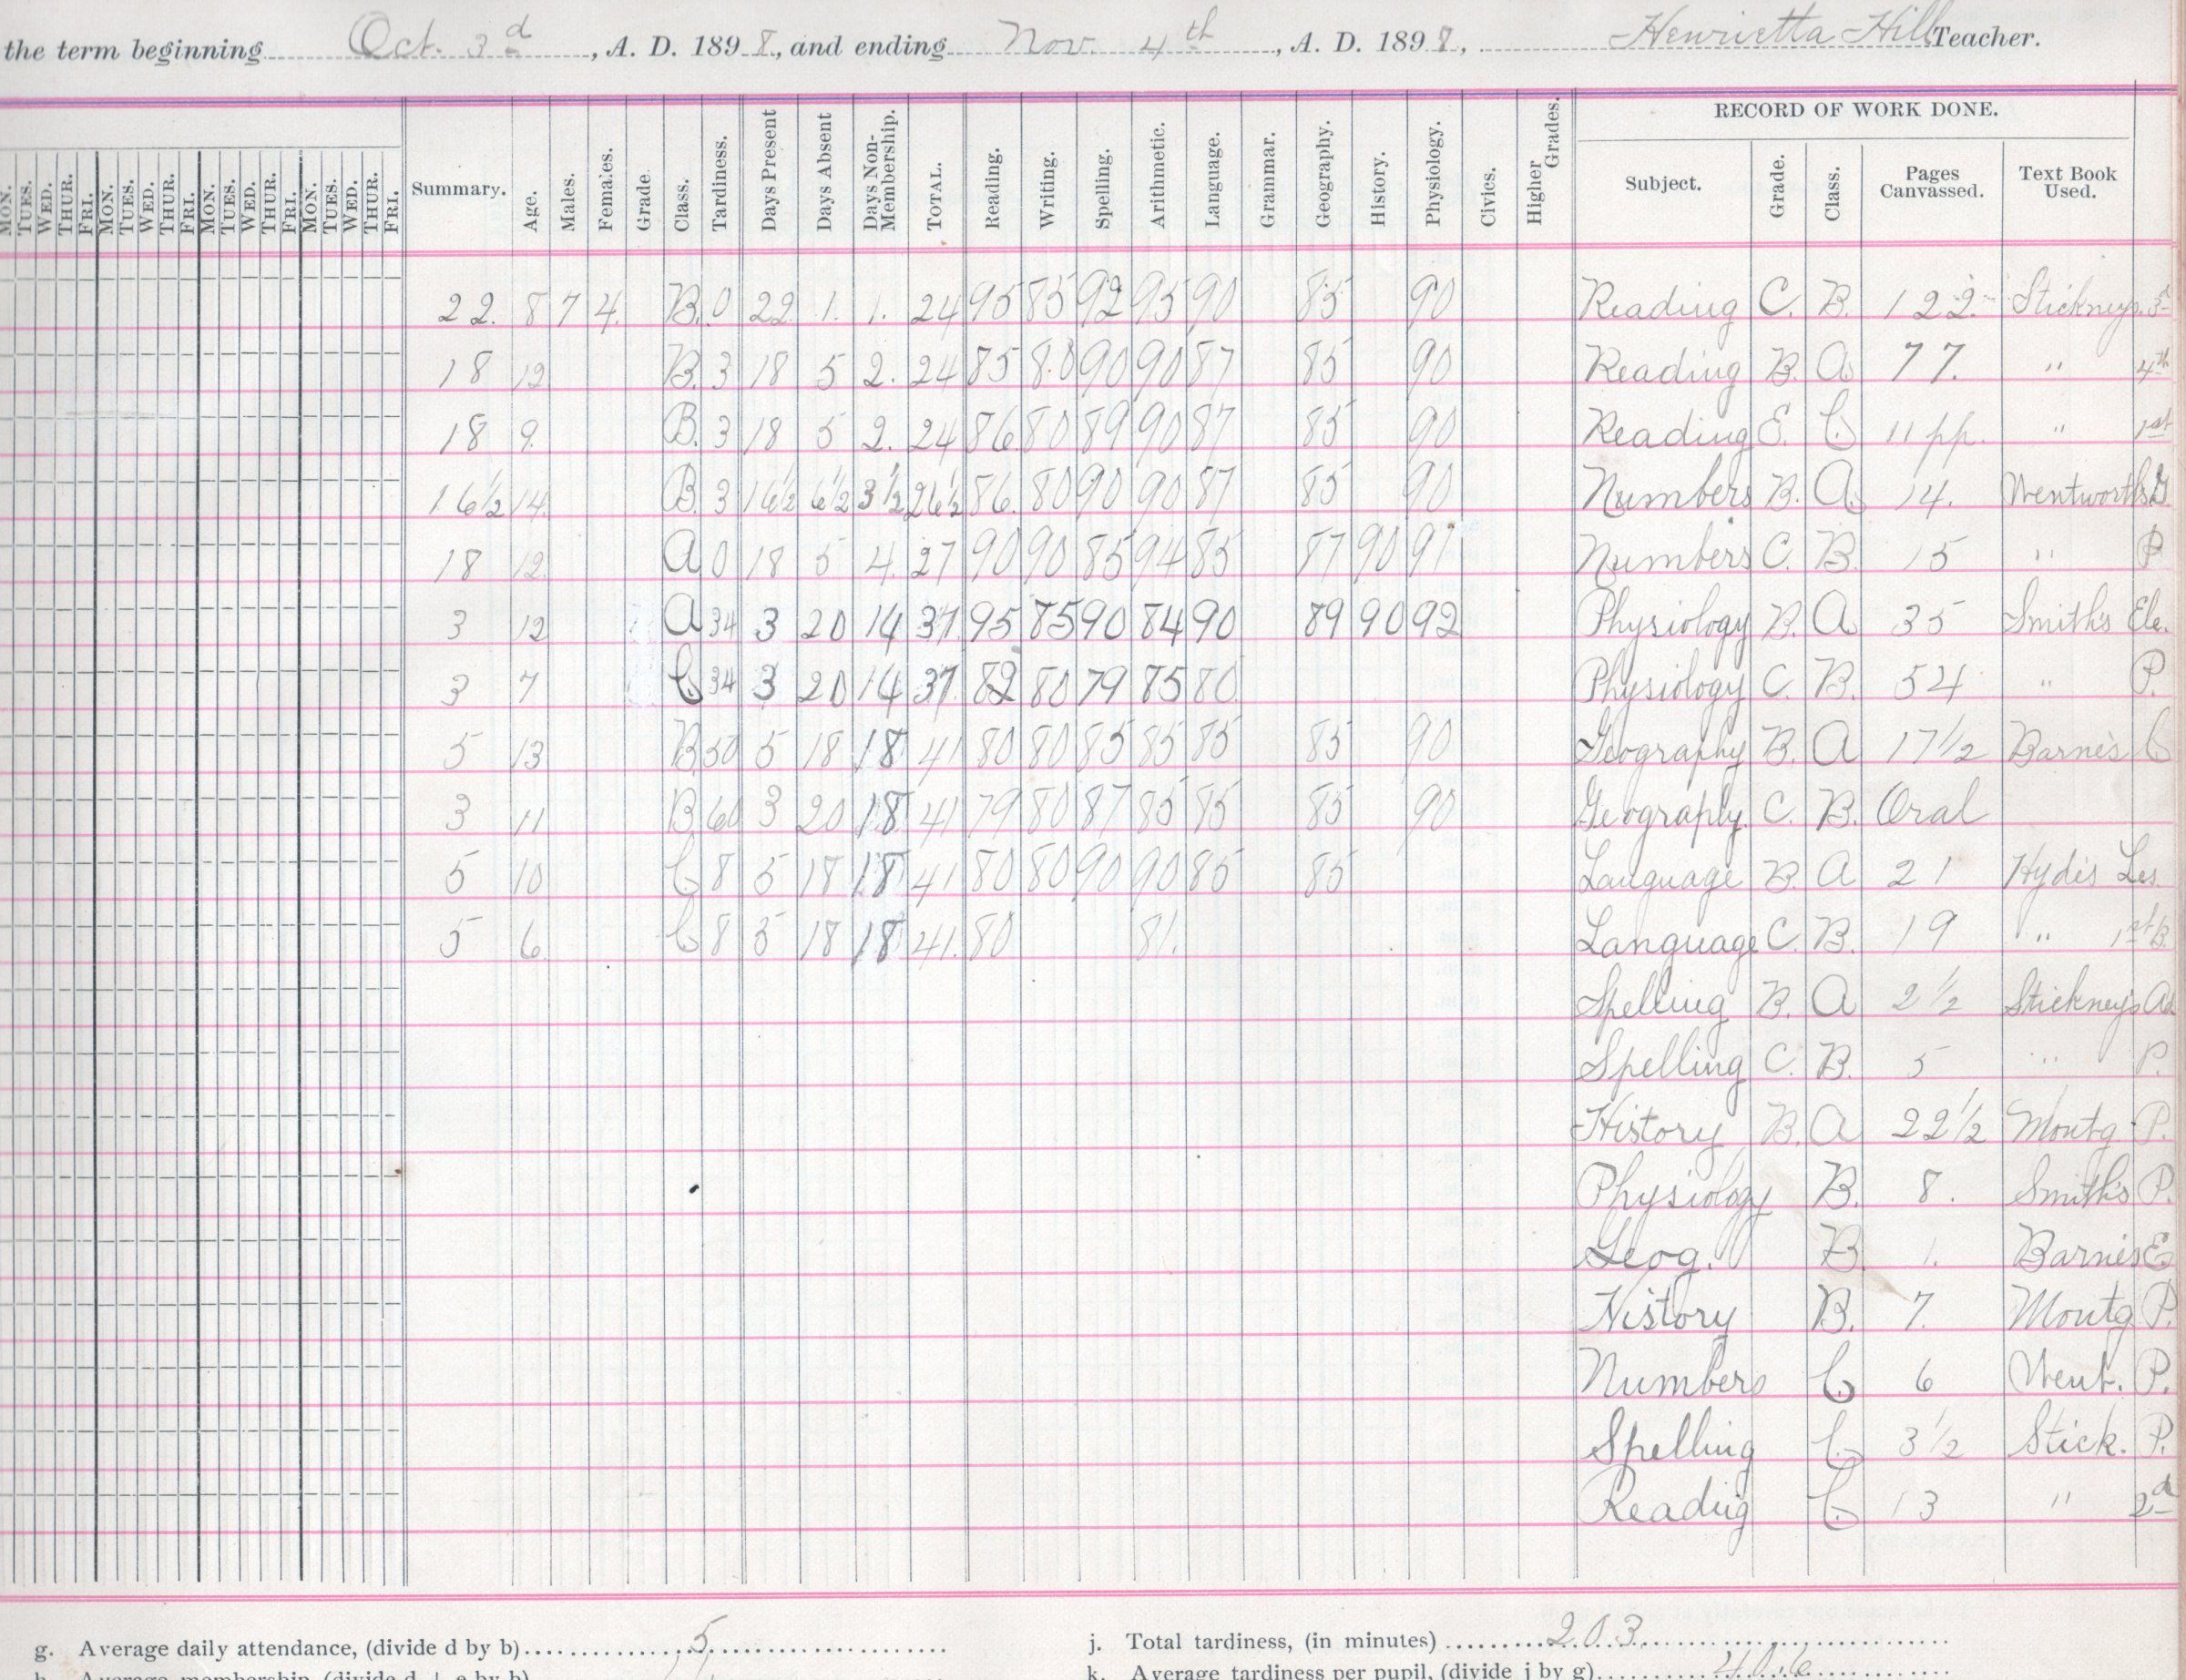 the term beginning Oct. 3d, A. D. 1898, and ending Nov. 4th, A. D. 1898, Henrietta Hill Teacher.
RECORD OF WORK DONE.
MON. TUES. WED. THUR. FRI. MON. TUES. WED. THUR. FRI. MON. TUES. WED. THUR. FRI. MON. TUES. WED. THUR. FRI. Summary. Age. Males. Females. Grade Class. Tardiness. Days Present Days Absent Days Non-Membership. TOTAL. Reading. Writing. Spelling. Arithmetic. Language. Grammar. Geography. History. Physiology. Civics. Higher Grades. Subject. Grade. Class. Pages Canvassed. Text Book Used.
22. 8 7 4. B. 0 22 1. 1. 24 95 85 92 95 90 85 90 Reading C. B. 122. Stickneys. 3d
18 12 B. 3 18 5 2. 24 85 8.0 90 90 87 85 90 Reading B. A 77. " 4th
18 9. B. 3 18 5 2. 24 86 80 89 90 87 85 90 Reading E. C 11 pp. " 1st
16½ 14. B. 3 16½ 6½ 3½ 26½ 86. 80 90 90 87 85 90 Numbers B. A. 14. Wentworth's
18 12. A 0 18 5 4. 27 90 90 85 94 85 87 90 91 Numbers C. B. 15 " P
3 12 A 34 3 20 14 37. 95 85 90 84 90 89 90 92 Physiology B. A 35 Smith's Ele.
3 7 C 34 3 20 14 37. 82 80 79 85 80. Physiology C. B. 54 " P.
5 13 B 50 5 18 18 41 80 80 85 85 85 85 90 Geography B. A 17½ Barne's C
3 11 B 60 3 20 18. 41 79 80 87 85 85 85 90 Geography. C. B. Oral
5 10 C 8 5 18 18 41 80 80 90 90 85 85 Language B. A 21 Hyde's Les.
5 6. C 8 5 18 18 41. 80 81. Language C. B. 19 " 1st B.
Spelling B. A 2½ Stickney's Ad
Spelling C. B. 5 " P.
History B. A 22½ Montg. P.
Physiology B. 8. Smith's P.
Geog. B 1. Barne's E
History B. 7. Montg P.
Numbers C 6 Went. P.
Spelling C 3½ Stick. P.
Reading C 13 " 2d
g. Average daily attendance, (divide d by b) 5 j. Total tardiness, (in minutes) 203
h. Average membership, (divide d + e by b) k. Average tardiness per pupil, (divide j by g) 40.6